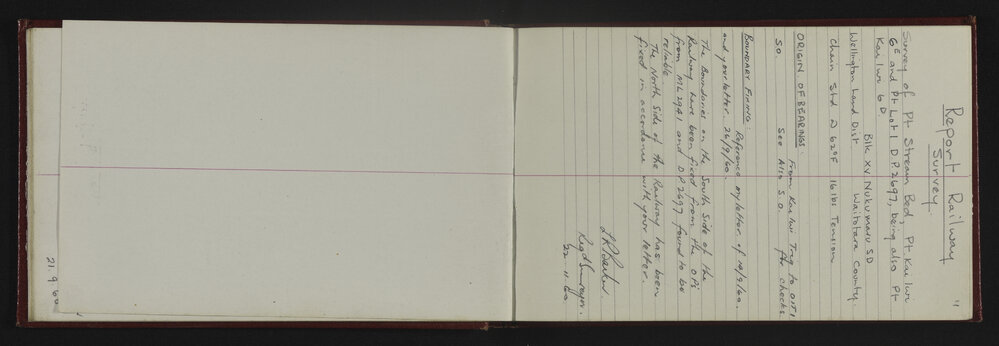 11
Report Railway
Survey.
Survey of Pt Stream Bed, Pt. Kai Iwi
6E and Pt Lot 1 D.P. 2697, being also Pt
Kai Iwi 6D
Blk XV. Nukumaru SD
Wellington Land Dist Waitotara County.
Chain Std @ 62°F 16 lbs Tension
ORIGIN OF BEARINGS. From Kai Iwi Trig to
S.O. See Also S.O. for checks.
BOUNDARY FIXING: Reference my letter of 14/9/60.
and your letter 26/9/60.
The Boundaries on the South Side of the
Railway have been fixed from the OP's
from ML 2941 and DP 2697 found to be
reliable.
The North Side of the Railway has been
fixed in accordance with your letter.
Regd Surveyor.
22-11-60
21.9.60